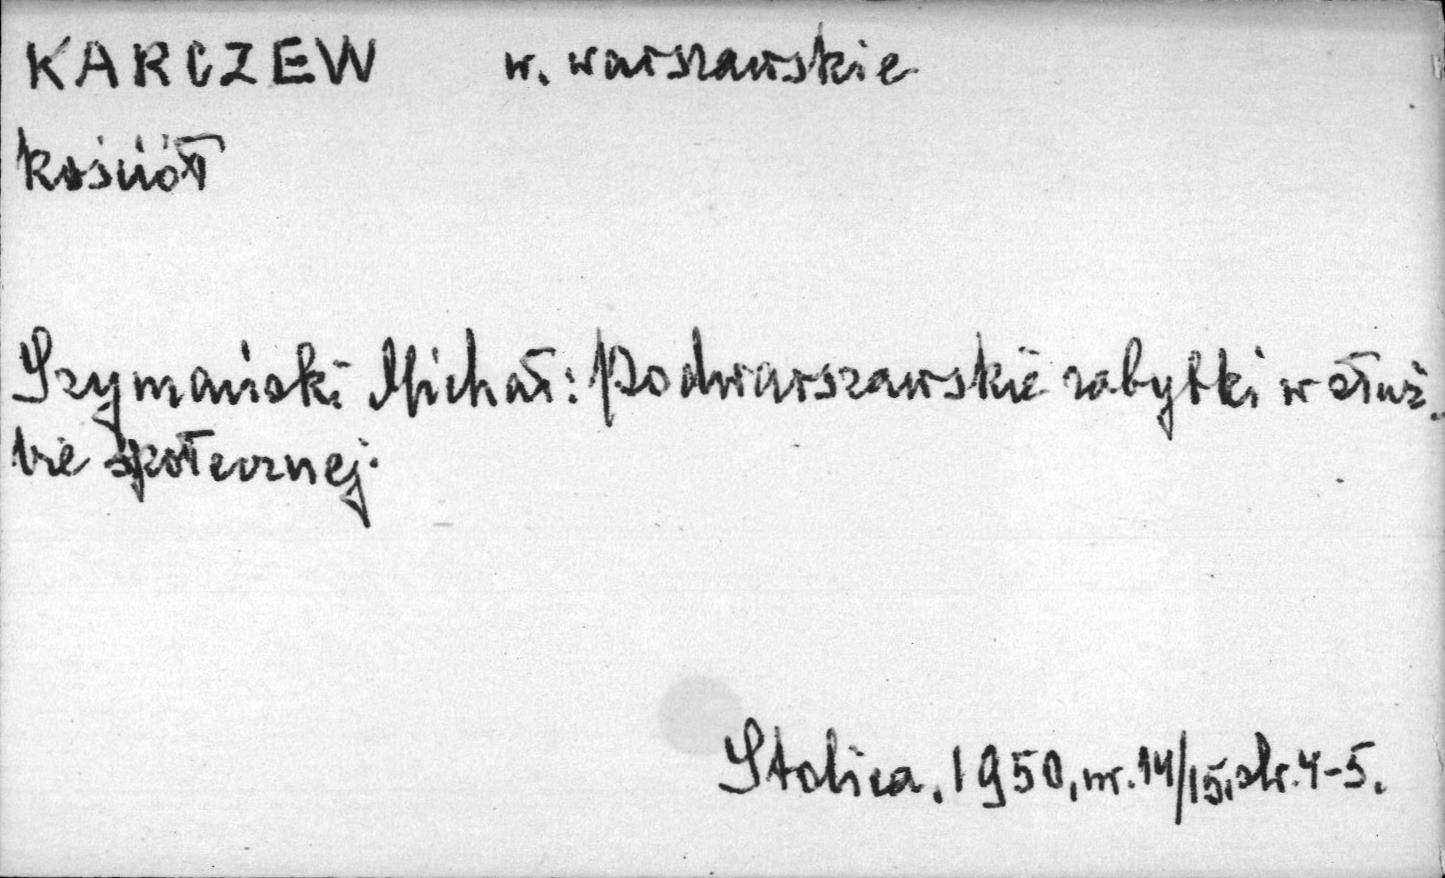 KARCZEW w. warszawskie
kościół
Szymański Michał: Podwarszawskie zabytki w służ-
bie społecznej.
Stolica, 1950, nr. 14/15, str. 4-5.